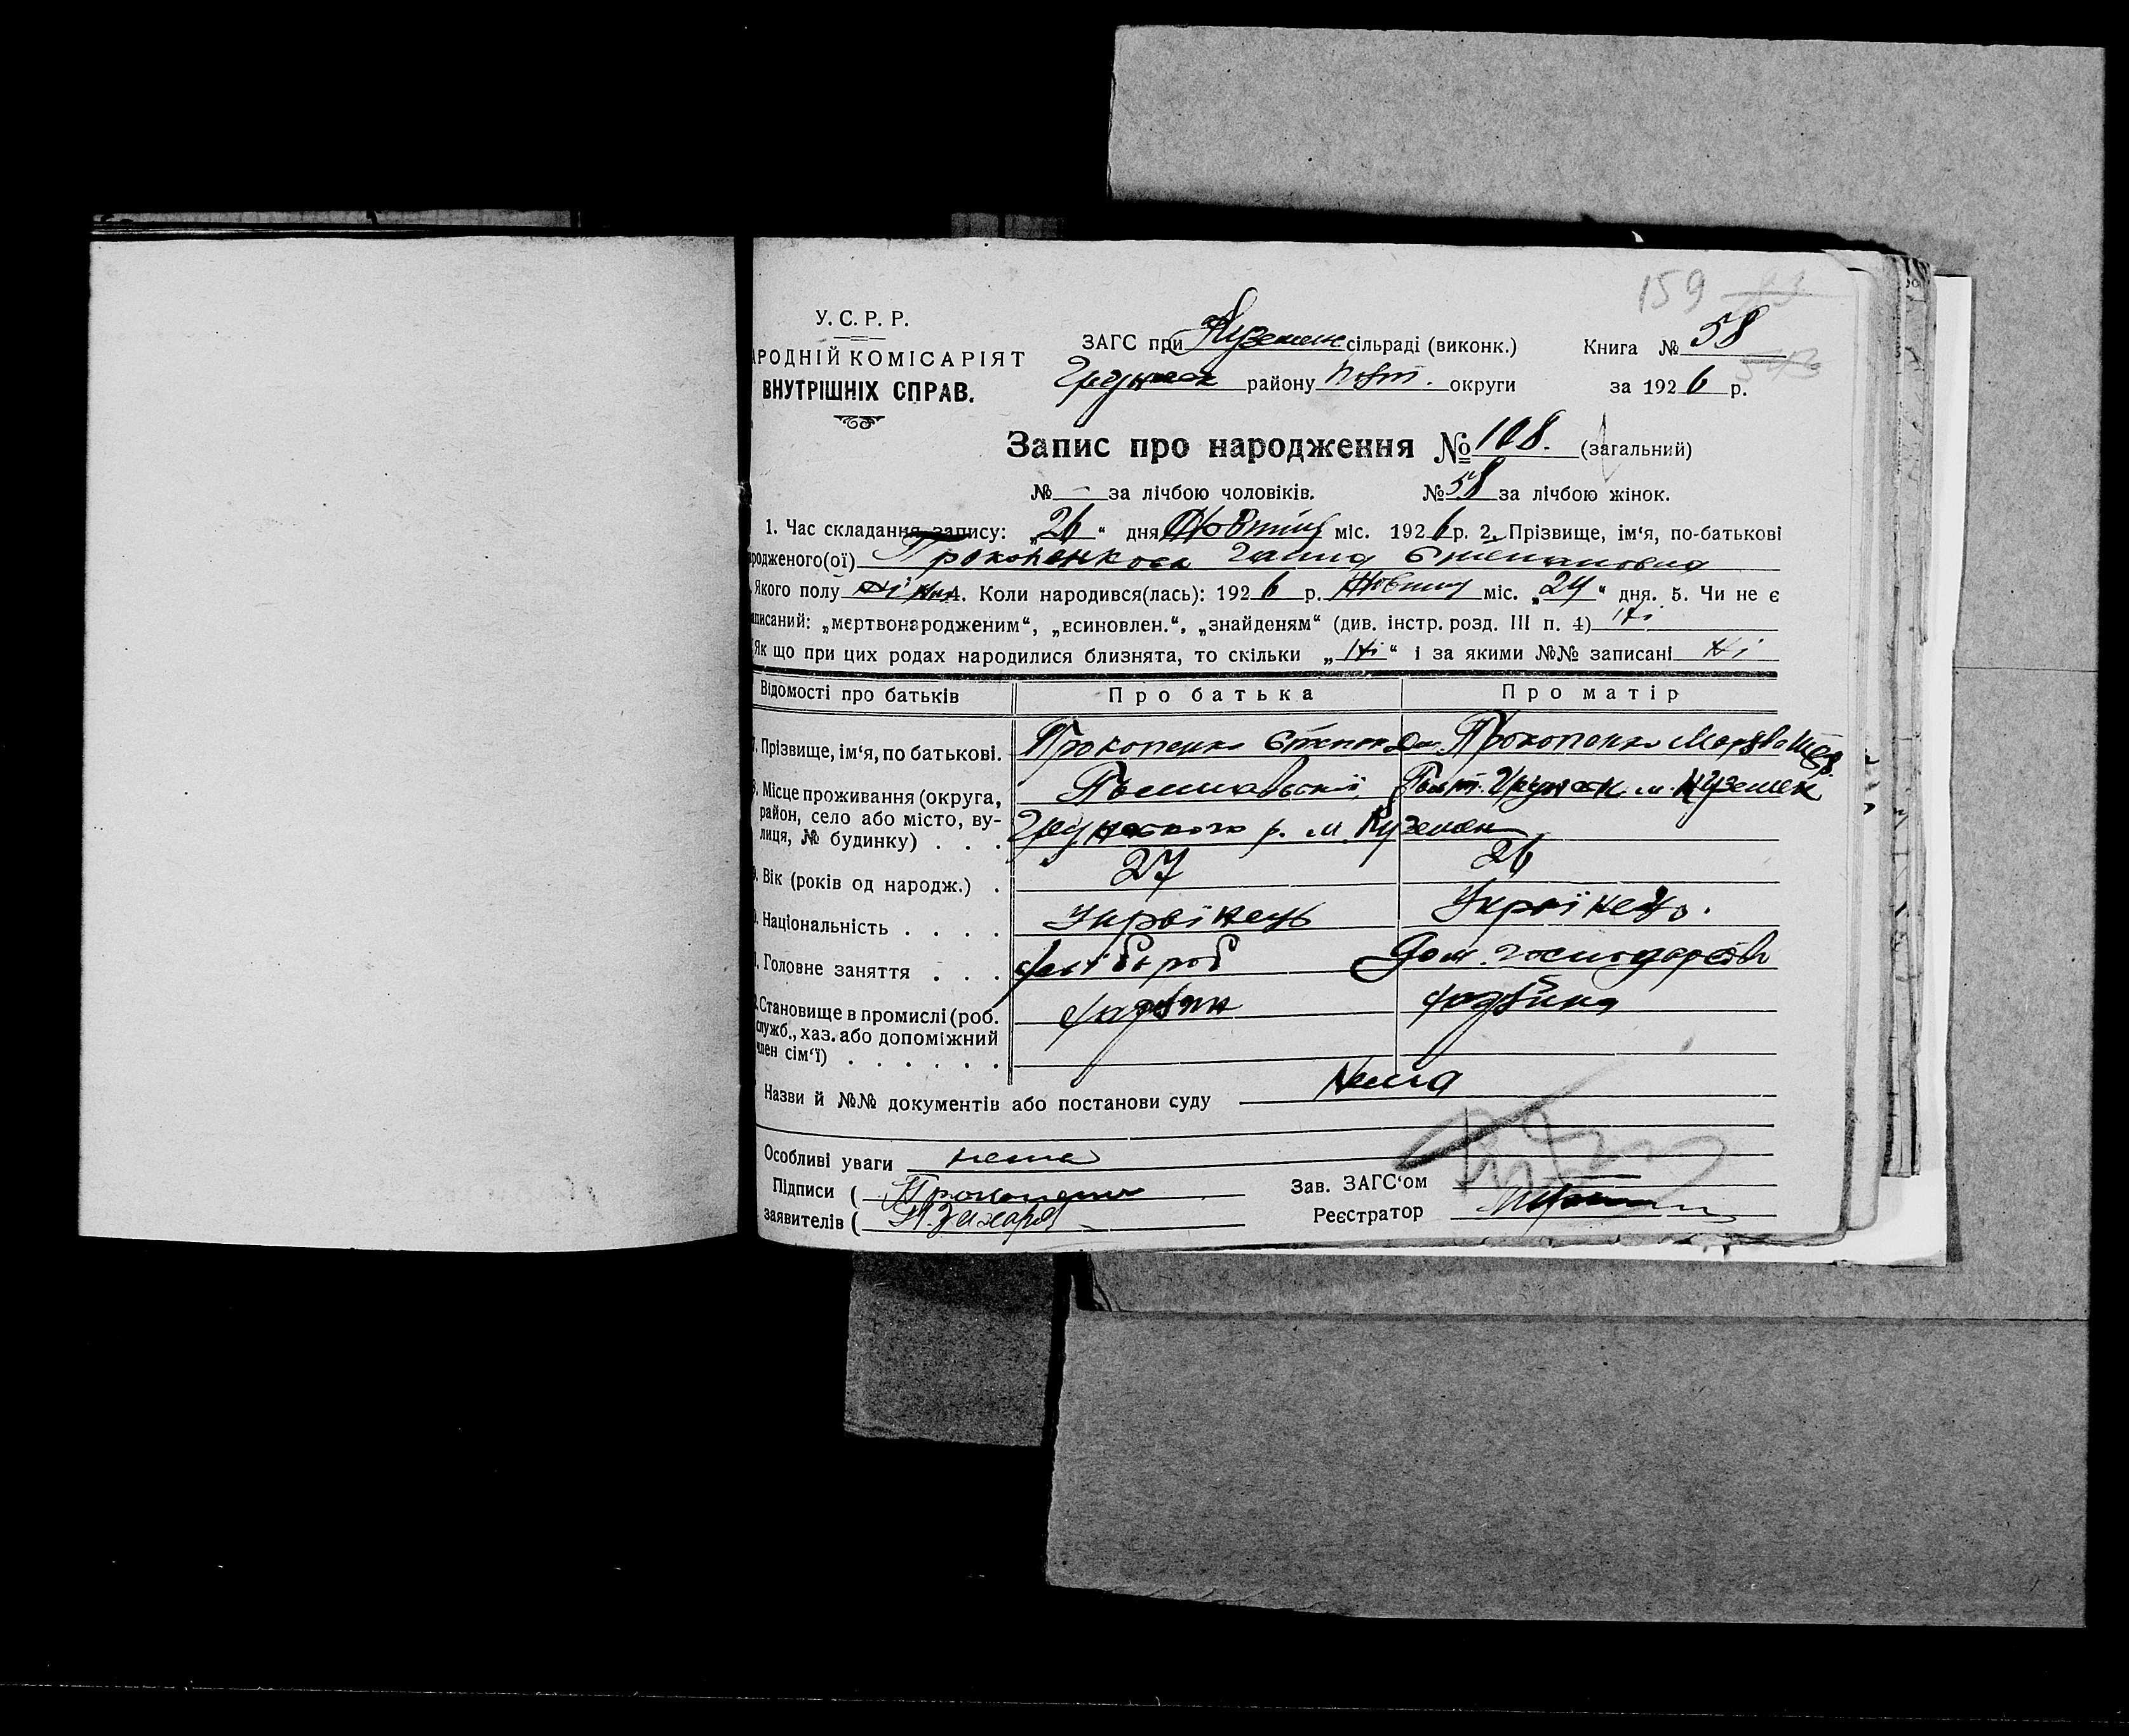 159
У.С.Р.Р.
АРОДНІЙ КОМІСАРІЯТ
ВНУТРІШНІХ СПРАВ.
ЗАГС при Куземин сільраді (виконк.) Книга № 58
району Полт. округи за 1926 р.
Запис про народження № 108. (загальний)
№ — за лічбою чоловіків. № 58 за лічбою жінок.
1. Час складання запису: „26“ дня Жовтня міс. 1926 р. 2. Прізвище, ім‘я, по-батькові
родженого(ої) Прокопенкова Ганна Степановна
Якого полу жіноч. 4. Коли народився(лась): 1926 р. Жовтня міс. „24“ дня. 5. Чи не є
писаний: „мертвонародженим“, „всиновлен.“, „знайденям“ (див. інстр. розд. III п. 4) Ні
Як що при цих родах народилися близнята, то скільки „Ні“ і за якими №№ записані Ні
Відомості про батьків Про батька Про матір
7. Прізвище, ім‘я, по батькові. Прокопенко Степан Прокопенко
8. Місце проживання (округа, Полтавської, Полт. м. Куземен
район, село або місто, ву- р. м. Куземен
лиця, № будинку) . . .
9. Вік (років од народж.) . 27 26
Національність . . . . Украінець Украінець.
Головне заняття . . . хлібороб Дом. господарство
Становище в промислі (роб. хазяін хазяйка
служб., хаз. або допоміжний
член сім‘ї) . . . . . .
Назви й №№ документів або постанови суду Нема
Особливі уваги нема
Підписи ( Прокопенко Зав. ЗАГС‘ом
заявителів ( Реєстратор